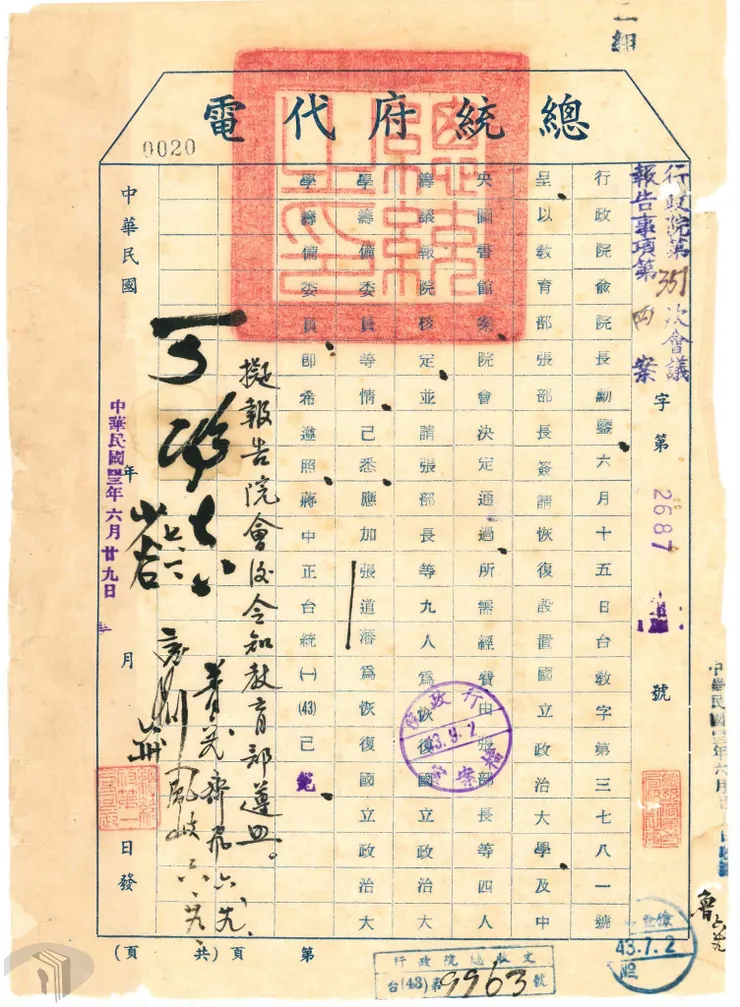 二組
總統府代電
0020
行政院第351次會議
報告事項第四案
字第2687號
行政院俞院長勛鑒六月十五日台教字第三七八一號
呈以教育部張部長簽請恢復設置國立政治大學及中
央圖書館案院會決定通過所需經費由張部長等四人
籌議報院核定並請張部長等九人為恢復國立政治大
學籌備委員等情已悉應加張道藩為恢復國立政治大
學籌備委員即希遵照蔣中正台統(一)(43)已
擬報告院會後令知教育部遵照。
可
中華民國 年 月 日發
中華民國四三年六月廿九日
第 頁(共 頁)
行政院
43.7.2
檔案室
43.7.2
行政院總收文
台(43)第9963號